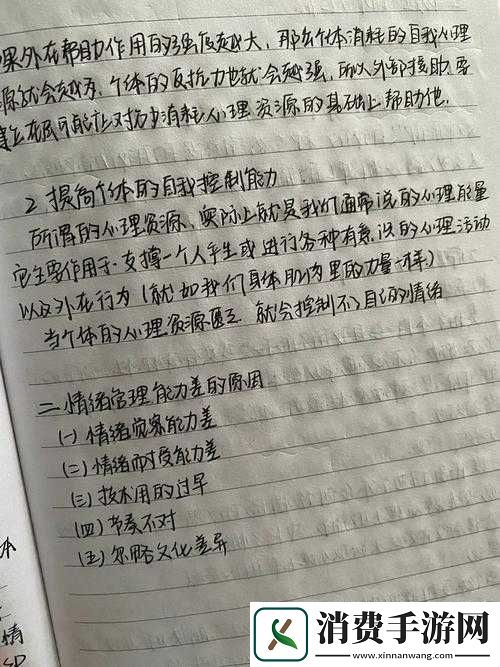 果外在帮助作用的强度越大,那么个体消耗的自我心理
源就会越多,个体的反抗力也就会越强,所以外部援助要
建立在尽可能让对方少消耗心理资源的基础上帮助他.
2 提高个体的自我控制能力
所谓的心理资源,实际上就是我们通常说的心理能量
它主要作用于·支撑一个人产生或进行各种有意识的心理活动
以及外在行为(就如我们身体肌肉里的力量一样)
当个体的心理资源匮乏 就会控制不了自己的情绪
二 情绪管理能力差的原因
(一) 情绪觉察能力差
(二) 情绪耐受能力差
(三) 技术用的过早
(四) 节奏不对
(五) 忽略文化差异
情
消费手游网
www.xinnanwang.com